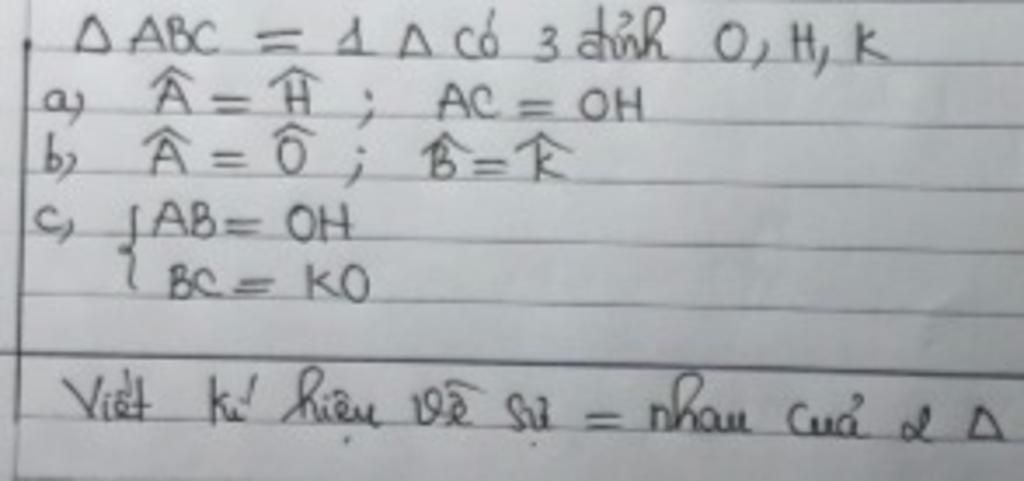 Δ ABC = 1 Δ có 3 đỉnh O, H, K
a) Â = Ĥ ; AC = OH
b) Â = Ô ; B̂ = K̂
c) { AB = OH
BC = KO
Viết kí hiệu về sự = nhau cuả 2 Δ